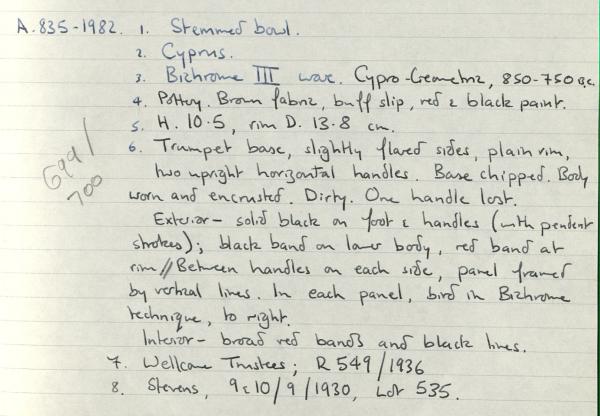 A.835-1982. 1. Stemmed bowl.
2. Cyprus.
3. Bichrome III ware. Cypro-Geometric, 850-750 B.C.
4. Pottery. Brown fabric, buff slip, red & black paint.
5. H. 10.5, rim D. 13.8 cm.
6. Trumpet base, slightly flared sides, plain rim,
two upright horizontal handles. Base chipped. Body
worn and encrusted. Dirty. One handle lost.
Exterior - solid black on foot & handles (with pendent
strokes); black band on lower body, red band at
rim // Between handles on each side, panel framed
by vertical lines. In each panel, bird in Bichrome
technique, to right.
Interior - broad red bands and black lines.
7. Wellcome Trustees; R 549/1936
8. Stevens, 9 & 10/9/1930, Lot 535.
699/
700